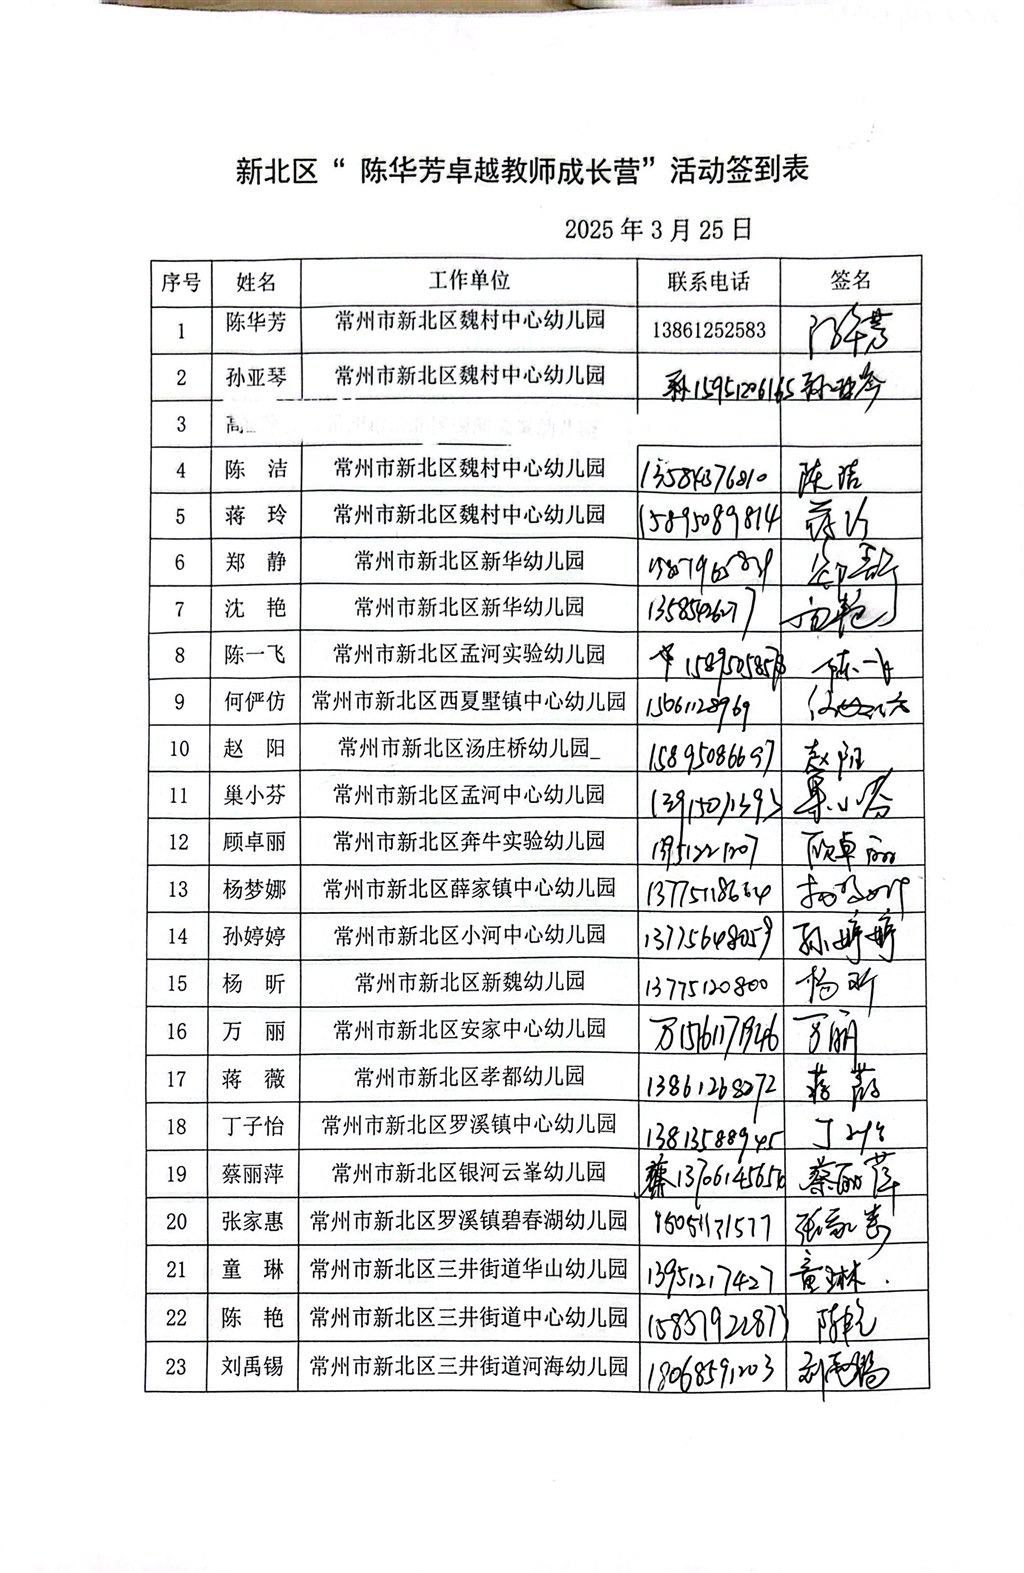 新北区“ 陈华芳卓越教师成长营”活动签到表
2025 年 3 月 25 日
序号 姓名 工作单位 联系电话 签名
1 陈华芳 常州市新北区魏村中心幼儿园 13861252583 陈华芳
2 孙亚琴 常州市新北区魏村中心幼儿园 15951206165 孙亚琴
3 高
4 陈 洁 常州市新北区魏村中心幼儿园 13584376810 陈洁
5 蒋 玲 常州市新北区魏村中心幼儿园 15895089814 蒋玲
6 郑 静 常州市新北区新华幼儿园 郑静
7 沈 艳 常州市新北区新华幼儿园 沈艳
8 陈一飞 常州市新北区孟河实验幼儿园 陈一飞
9 何俨仿 常州市新北区西夏墅镇中心幼儿园 15061128969
10 赵 阳 常州市新北区汤庄桥幼儿园_ 15895086697 赵阳
11 巢小芬 常州市新北区孟河中心幼儿园 巢小芬
12 顾卓丽 常州市新北区奔牛实验幼儿园 顾卓丽
13 杨梦娜 常州市新北区薛家镇中心幼儿园 13775118664 杨梦娜
14 孙婷婷 常州市新北区小河中心幼儿园 13775648059 孙婷婷
15 杨 昕 常州市新北区新魏幼儿园 13775120800 杨昕
16 万 丽 常州市新北区安家中心幼儿园 万丽
17 蒋 薇 常州市新北区孝都幼儿园 13861268272 蒋薇
18 丁子怡 常州市新北区罗溪镇中心幼儿园 13813588945 丁子怡
19 蔡丽萍 常州市新北区银河云峯幼儿园 蔡丽萍
20 张家惠 常州市新北区罗溪镇碧春湖幼儿园 15051131577 张家惠
21 童 琳 常州市新北区三井街道华山幼儿园 13951217427 童琳
22 陈 艳 常州市新北区三井街道中心幼儿园 陈艳
23 刘禹锡 常州市新北区三井街道河海幼儿园 18068591203 刘禹锡